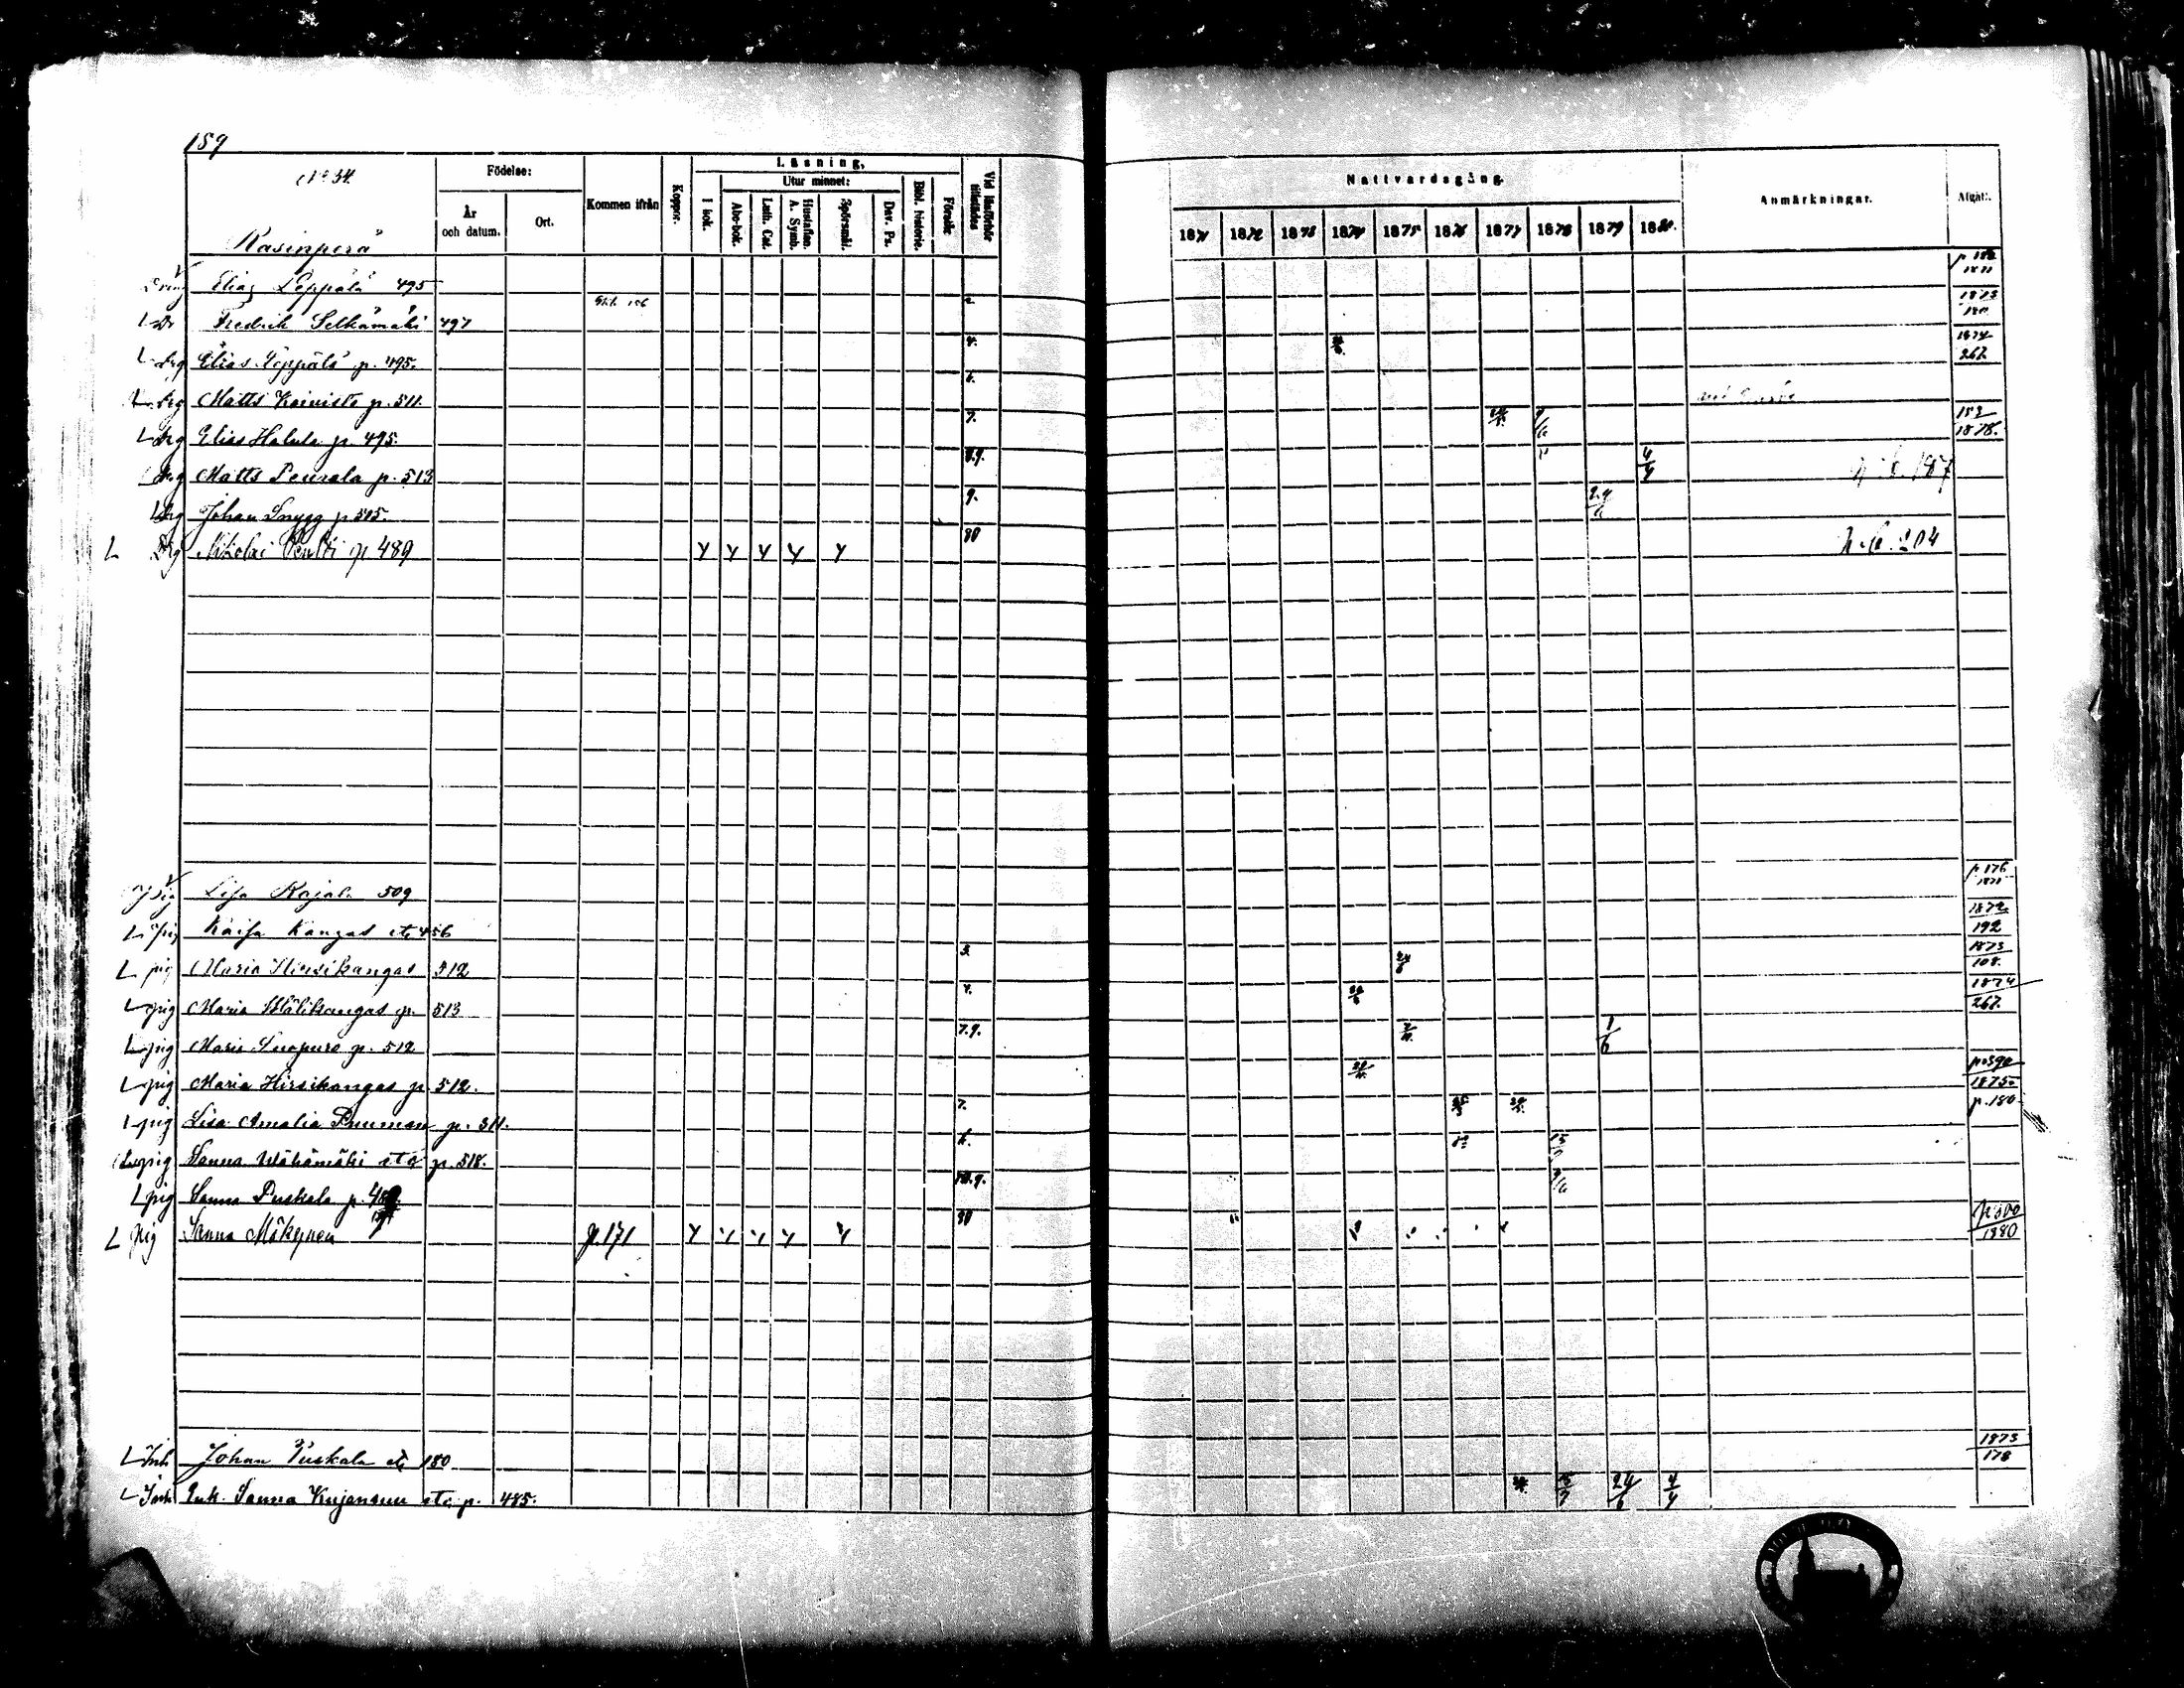 159
No 34.
Rasinperä
Födelse:
År och datum.
Ort.
Kommen ifrån
Koppor.
Läsning.
I bok.
Utur minnet:
Abc-bok.
Luth. Cat.
Hustaflan. A. Symb.
Spörsmål.
Dav. Ps.
Bibl. historie.
Försök
Vid läsförhör tillstädes
Nattvardsgång.
1871 1872 1873 1874 1875 1876 1877 1878 1879 1880.
Anmärkningar.
Afgått.
Dräng Elias Leppälä 495 1871
L Dr Fredrik Selkämäki 497 1873 180
L drg Elias Leppälä p. 495. 4. 1874 267
drg Matts Koivisto p. 511. 6.
L drg Elias Halula p. 495. 7. 182 1878.
drg Matts Peurala p. 513 8.9. 4/4
L drg Johan Snygg p 515. 9. 24/6
L Drg Nikolai Pentti p 489 y y y y y 80 204
pig Lisa Rajala 509 p 176 1871
L pig Kaisa Kangas etc 456 1872 192
L pig Maria Hirsikangas 512 3. 24/6 1873 108.
L pig Maria Wälikangas p. 513 4. 1874 267.
L pig Maria Suopuro p. 512 7.9. 1/6
L pig Maria Hirsikangas p. 512. p 390 1875.
L pig Lisa Amalia Puuman p. 511. 7. p. 180
pig Sanna Wähämäki etc p. 518. 6.
L pig Sanna Puskala p.
L pig Sanna Mäkynen p. 171 y y y y y 80 p 300 1880
L Inh Johan Puskala etc 180 1873 178
L Inh Enk. Sanna Kujansuu etc p. 485. 24/6 4/4